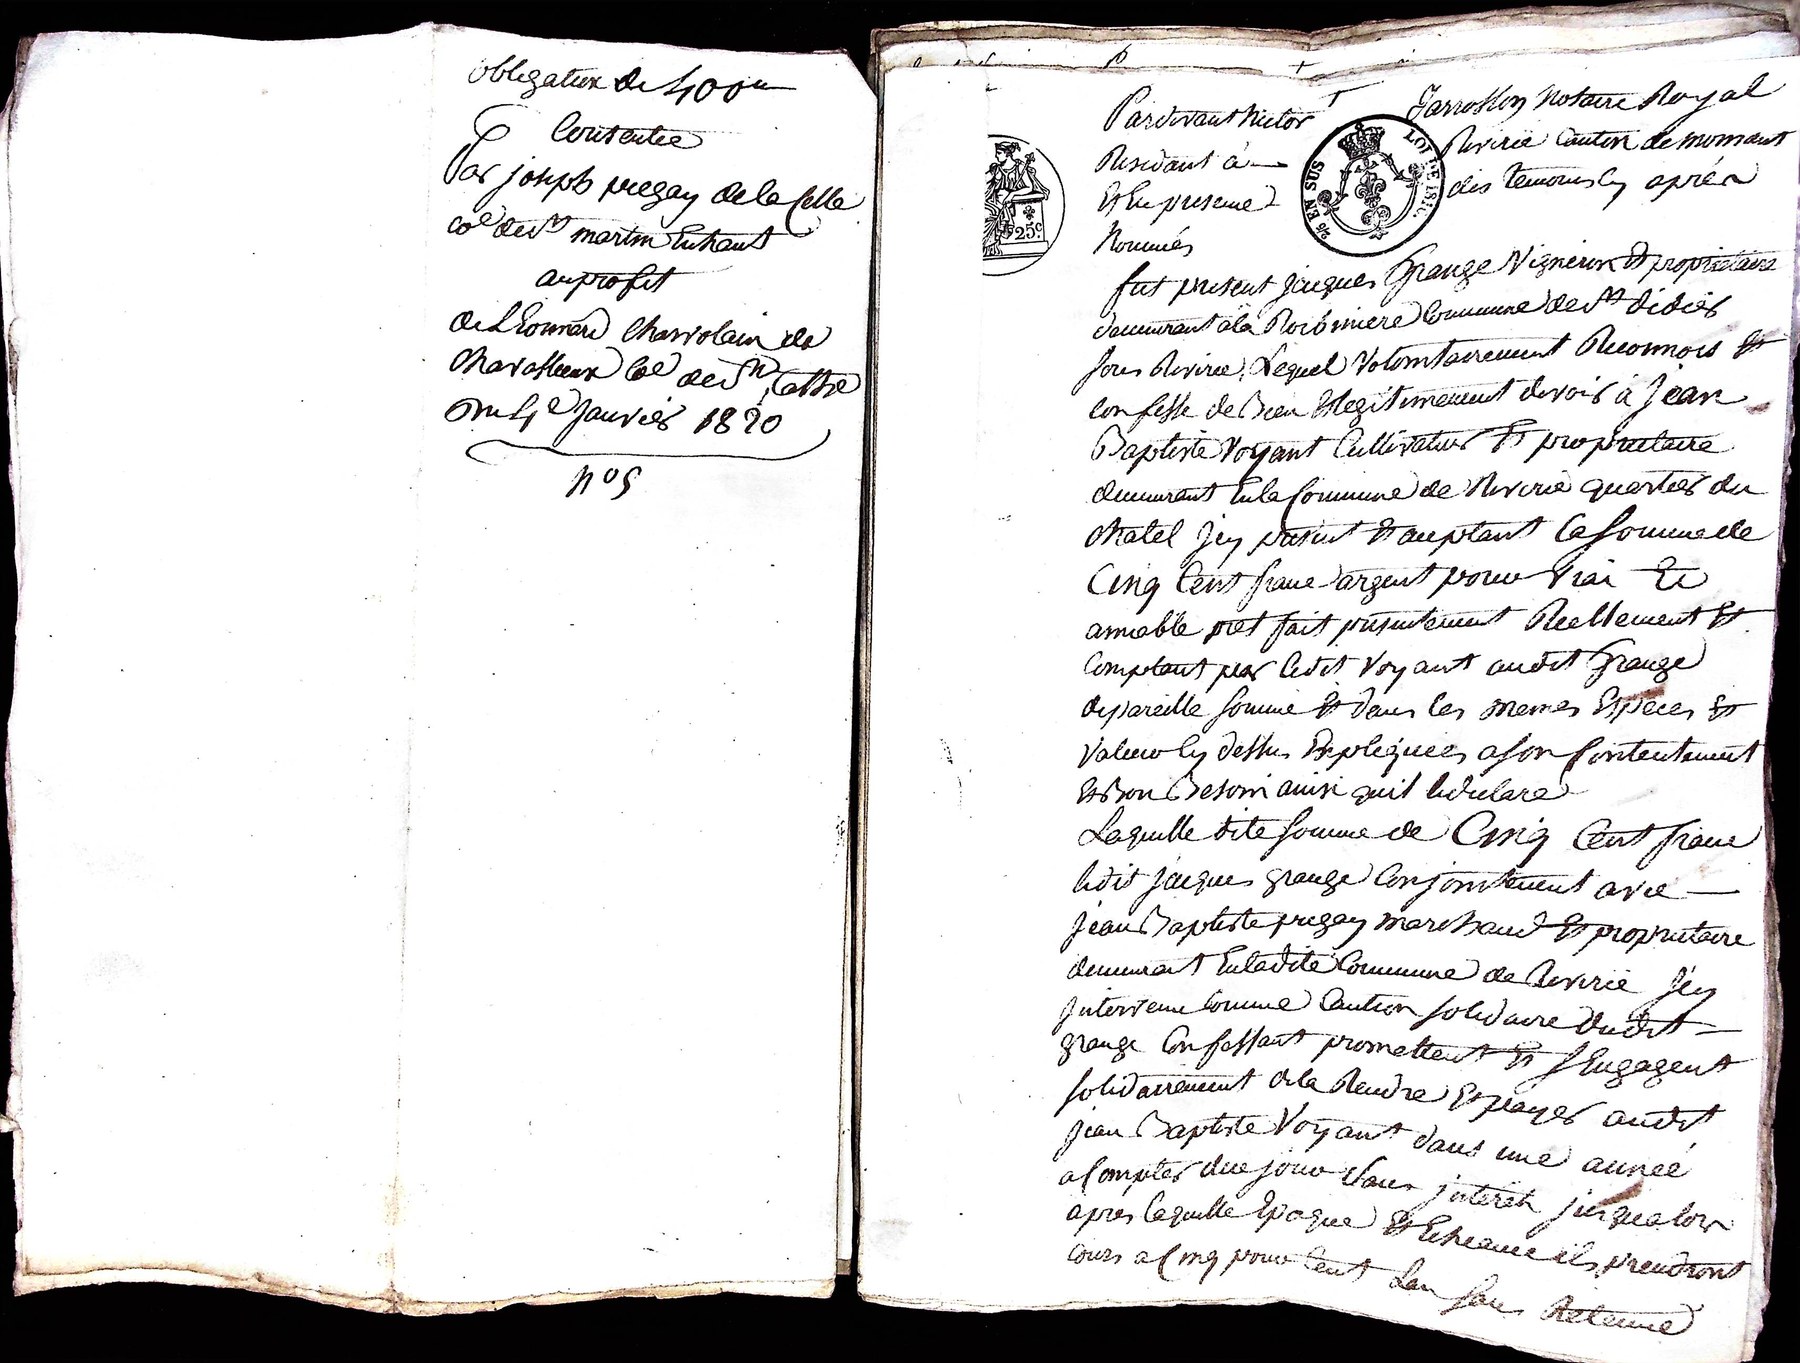 obligation de 400 ll
Consentie
Par joseph pregay de la Celle
coe de st martin Enhaut
au profit
de Léonnard Charvolain de
Chavasseux Coe de ste Catne
Du 4e Janvier 1820
n° 5
Pardevant hector Jarrosson Notaire Royal
Residant à Riverie Canton de mornant
Et En presence des temoins cy après
Nommés
EN SUS
LOI DE 1816
25c
fut present jacques Grange Vigneron Et proprietaire
demeurant a la Rocbnière Commune de st didier
sous Riverie, Lequel Volontairement Reconnois Et
Confesse de Bien Et legitimement devoir à Jean
Baptiste Voyant Cultivateur Et proprietaire
demeurant En la Commune de Riverie quartier du
Chatel Jcy présent Et acceptant la somme de
Cinq Cent franc argent pour Vrai Et
amiable pret fait présentement Reellement Et
Comptant par ledit Voyant audit Grange
de pareille somme Et dans les memes Espèces Et
Valeur Cy dessus Expliquées a son Contentement
Et Bon Besoin ainsi quil le declare
Laquelle dite somme de Cinq Cent franc
ledit jacques grange Conjointement avec
jean Baptiste pregay marchand Et proprietaire
demeurant En ladite Commune de Riverie Jcy
Intervenu Comme Caution solidaire dudit
grange Confessant promettent Et sEngagent
solidairement de la Rendre Et payer audit
jean Baptiste Voyant dans une année
a Compter de ce jour sans intérêts jusqualors
après laquelle Epoque Et Echeance ils prendront
Cours a Cinq pour Cent Lan sans Retenue